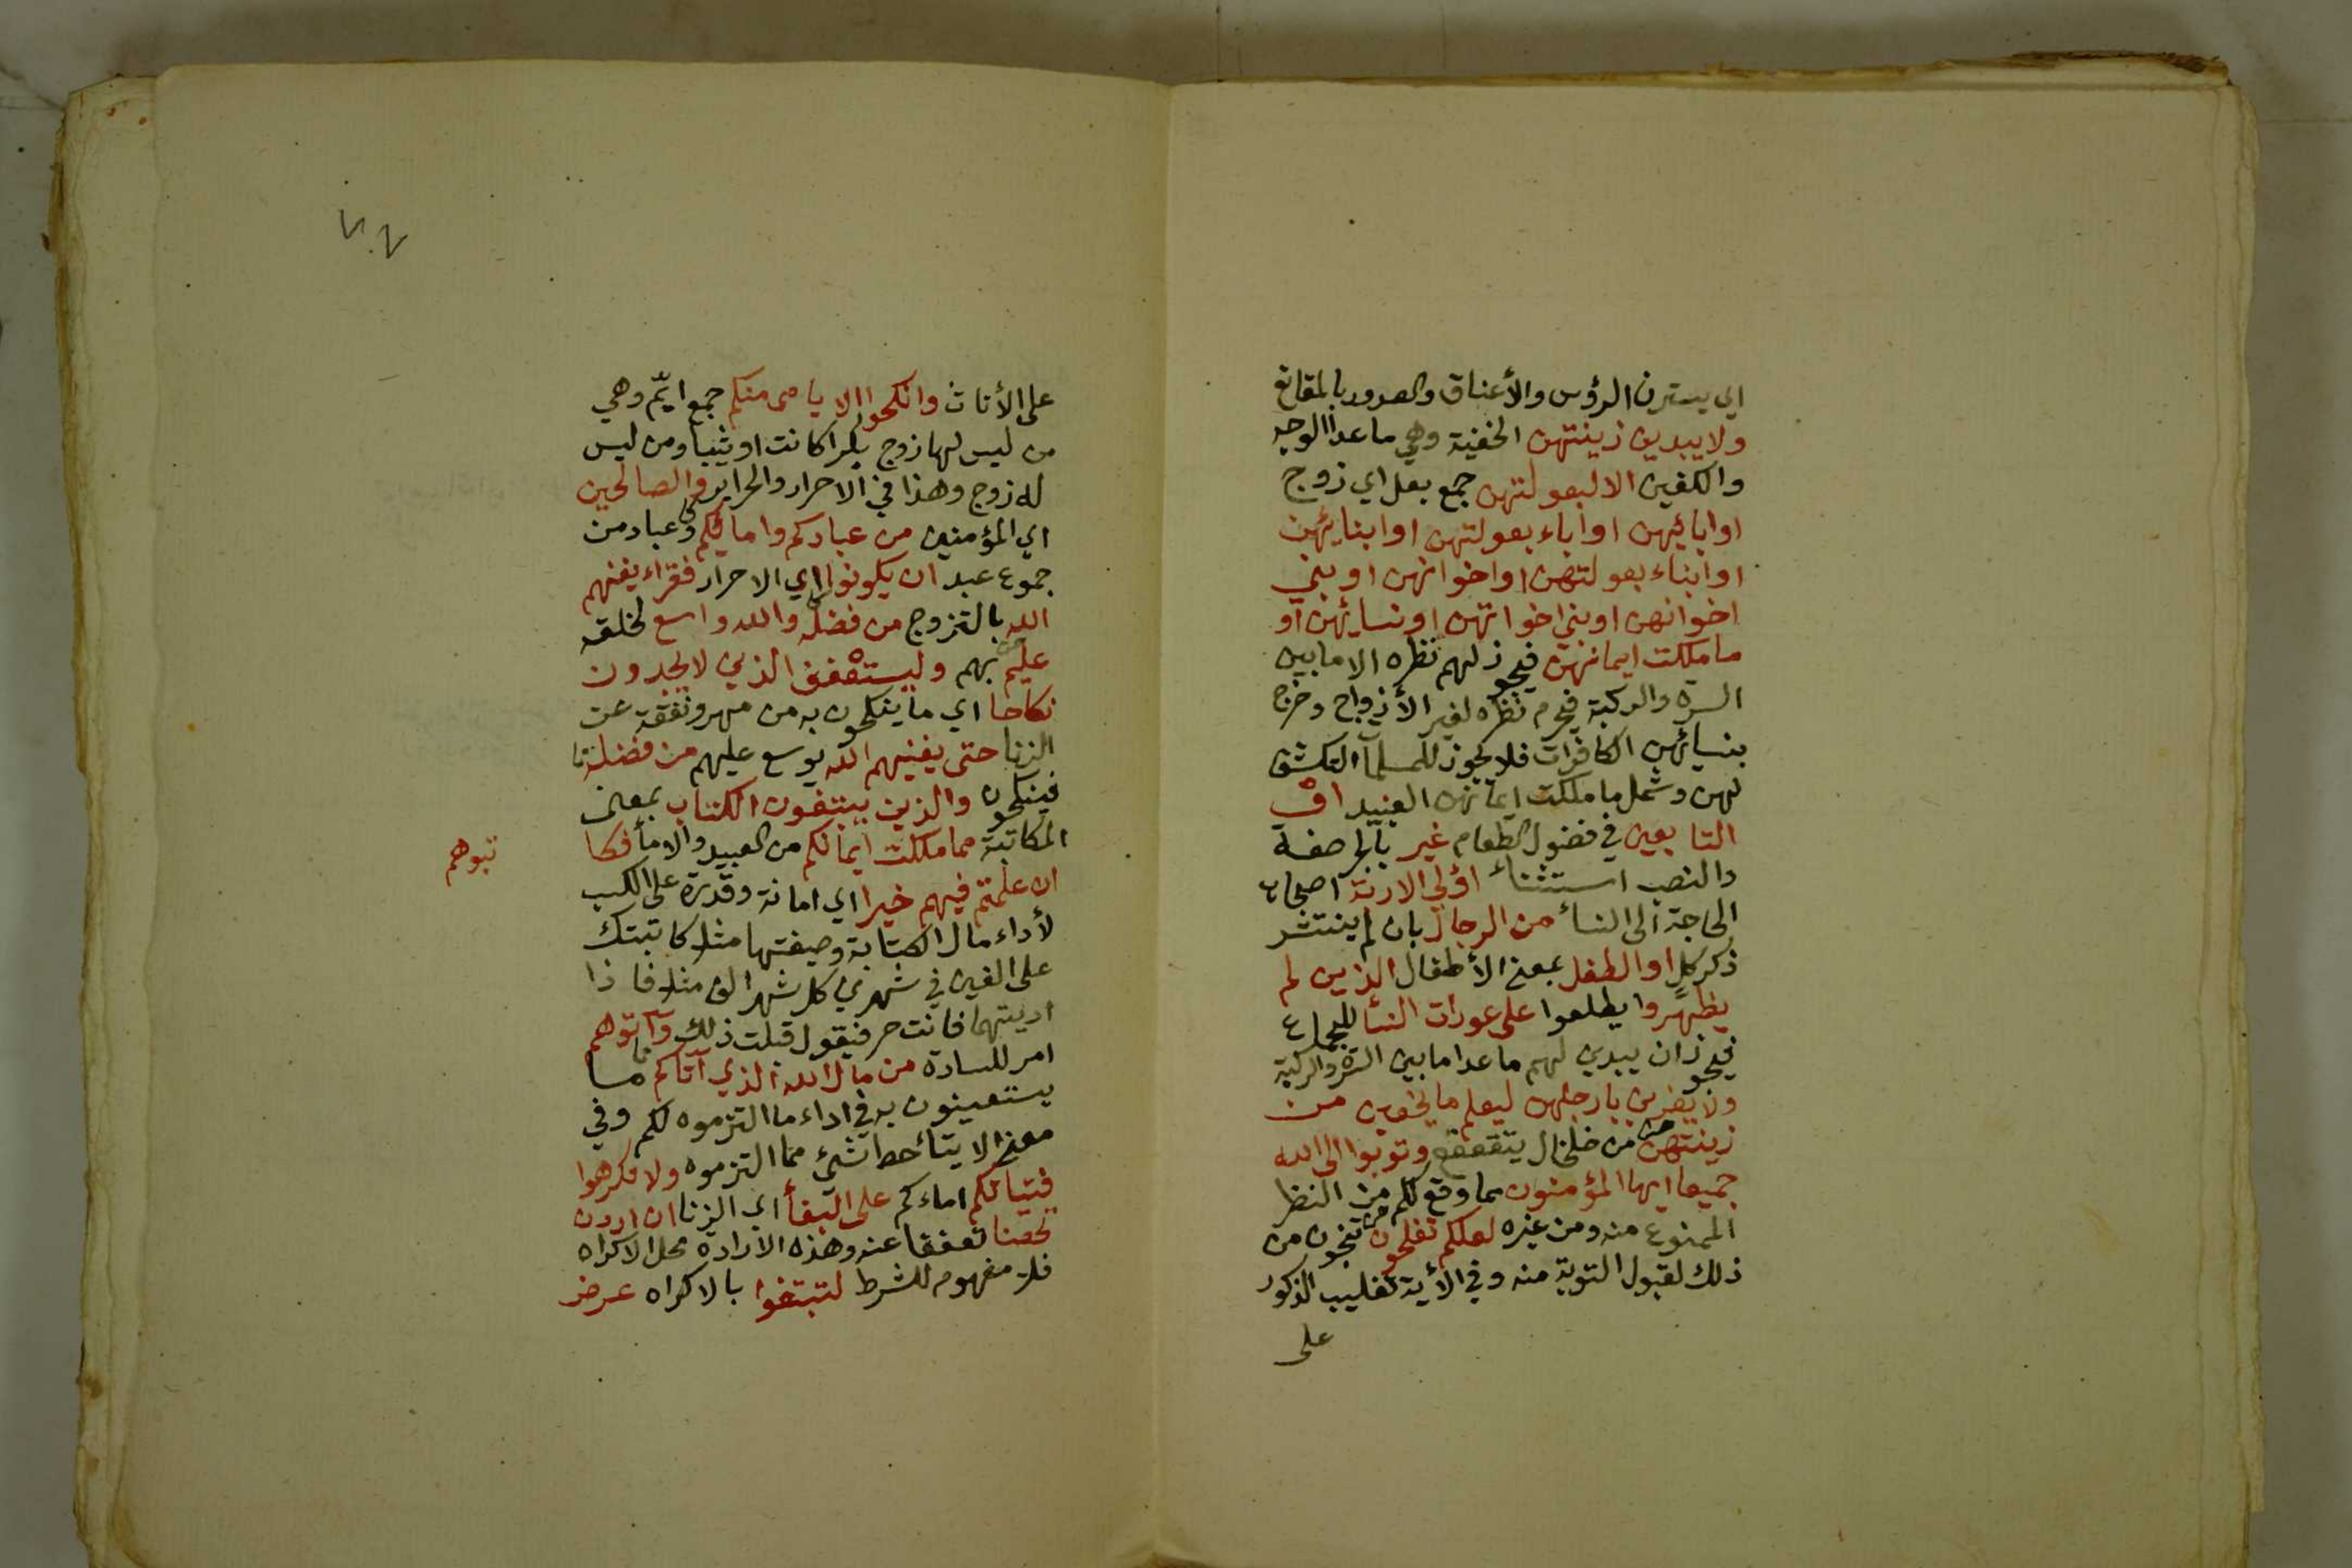 اي يسترن الرؤس والأعناق والصدور بالمقانع
ولا يبدين زينتهن الخفية وهي ما عدا الوجه
والكفين الا لبعولتهن جمع بعل اي زوج
او ابائهن او اباء بعولتهن او ابنائهن
او ابناء بعولتهن او اخوانهن او بني
اخوانهن او بني اخواتهن او نسائهن او
ما ملكت ايمانهن فيجوز لهم نظره الا ما بين
السرة والركبة فيحرم نظره لغير الأزواج وخرج
بنسائهن الكافرات فلا يجوز للمسلمآ التكشف
لهن وشمل ما ملكت ايمانهن العبيد او
التابعين في فضول الطعام غير بالجر صفة
والنصب استثناء اولي الاربة اصحاب
الحاجة الى النساء من الرجال بان لم ينتشر
ذكر كل او الطفل بمعنى الأطفال الذين لم
يظهروا يطلعوا على عورات النساء للجماع
فيجوز ان يبدين لهم ما عدا ما بين السرة والركبة
ولا يضربن بارجلهن ليعلم ما يخفين من
زينتهن من خلخال يتقعقع وتوبوا الى الله
جميعا ايها المؤمنون مما وقع لكم من النظر
الممنوع منه ومن غيره لعلكم تفلحون تنجون من
ذلك لقبول التوبة منه وفي الأية تغليب الذكور
على
على الأناث وانكحوا الايامى منكم جمع ايّم وهي
من ليس لها زوج بكرا كانت او ثيبا ومن ليس
له زوج وهذا في الاحرار والحراير والصالحين
اي المؤمنين من عبادكم وامائكم وعباد من
جموع عبد ان يكونوا اي الاحرار فقراء يغنهم
الله بالتزوج من فضله والله واسع لخلقه
عليم بهم وليستعفف الذين لا يجدون
نكاحا اي ما ينكحون به من مهر ونفقة عن
الزنا حتى يغنيهم الله يوسع عليهم من فضله
فينكحون والذين يبتغون الكتاب بمعنى
المكاتبة مما ملكت ايمانكم من العبيد والاماء فكا
تبوهم
ان علمتم فيهم خيرا اي امانة وقدرة على الكسب
لأداء مال الكتابة وصيغتها مثلا كاتبتك
على الفين في شهرين كل شهر الف مثلا فاذا
اديتهما فانت حر فيقول قبلت ذلك وآتوهم
امر للسادة من مال الله الذي آتاكم ما
يستعينون به في اداء ما التزموه لكم وفي
معنى الايتاء حط شئ مما التزموه ولا تكرهوا
فتياتكم اماءكم على البغاء اي الزنا ان اردن
تحصنا تعففا عنه وهذه الارادة محل الاكراه
فلا مفهوم للشرط لتبتغوا بالاكراه عرض